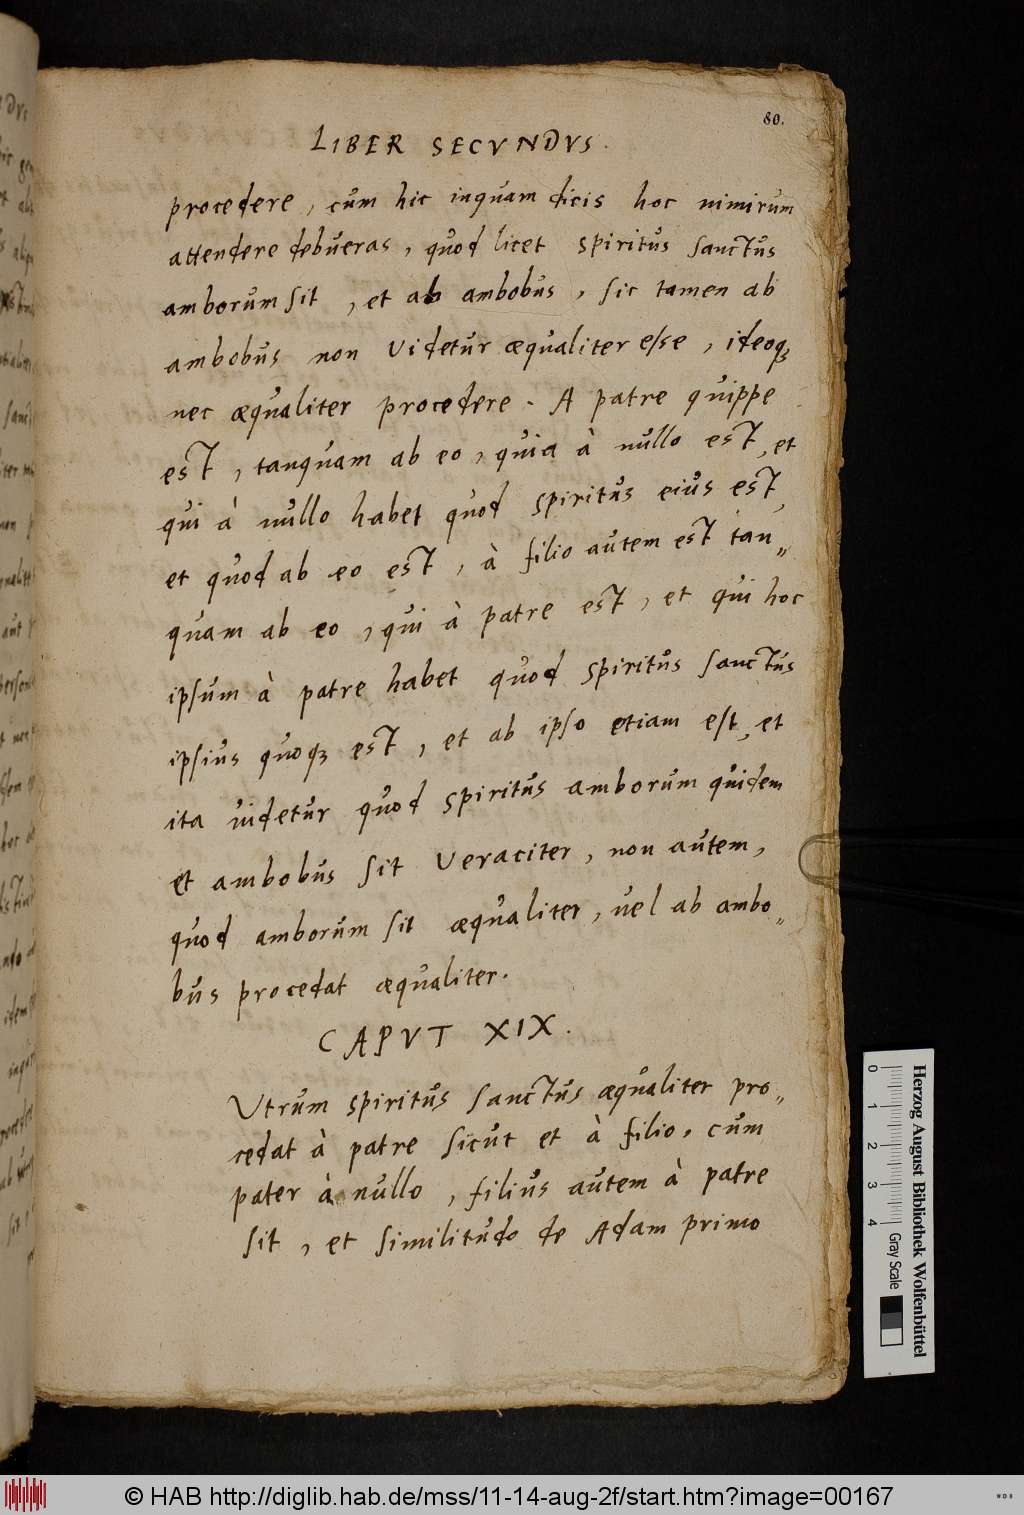 80.
LIBER SECVNDVS.
procedere, cum hic inquam dicis hoc nimirum
attendere debueras, quod licet spiritus sanctus
amborum sit, et ab ambobus, sic tamen ab
ambobus non videtur æqualiter esse, ideoq;
nec æqualiter procedere. A patre quippe
est, tanquam ab eo, quia à nullo est, et
qui à nullo habet quod spiritus eius est,
et quod ab eo est, à filio autem est tan„
quam ab eo, qui à patre est, et qui hoc
ipsum à patre habet quod spiritus sanctus
ipsius quoq; est, et ab ipso etiam est, et
ita uidetur quod spiritus amborum quidem
et ambobus sit veraciter, non autem,
quod amborum sit æqualiter, vel ab ambo„
bus procedat æqualiter.
CAPVT XIX.
Vtrum spiritus sanctus æqualiter pro„
cedat à patre sicut et à filio, cum
pater à nullo, filius autem à patre
sit, et similitudo de Adam primo
Herzog August Bibliothek Wolfenbüttel
0 1 2 3 4 Gray Scale
© HAB http://diglib.hab.de/mss/11-14-aug-2f/start.htm?image=00167